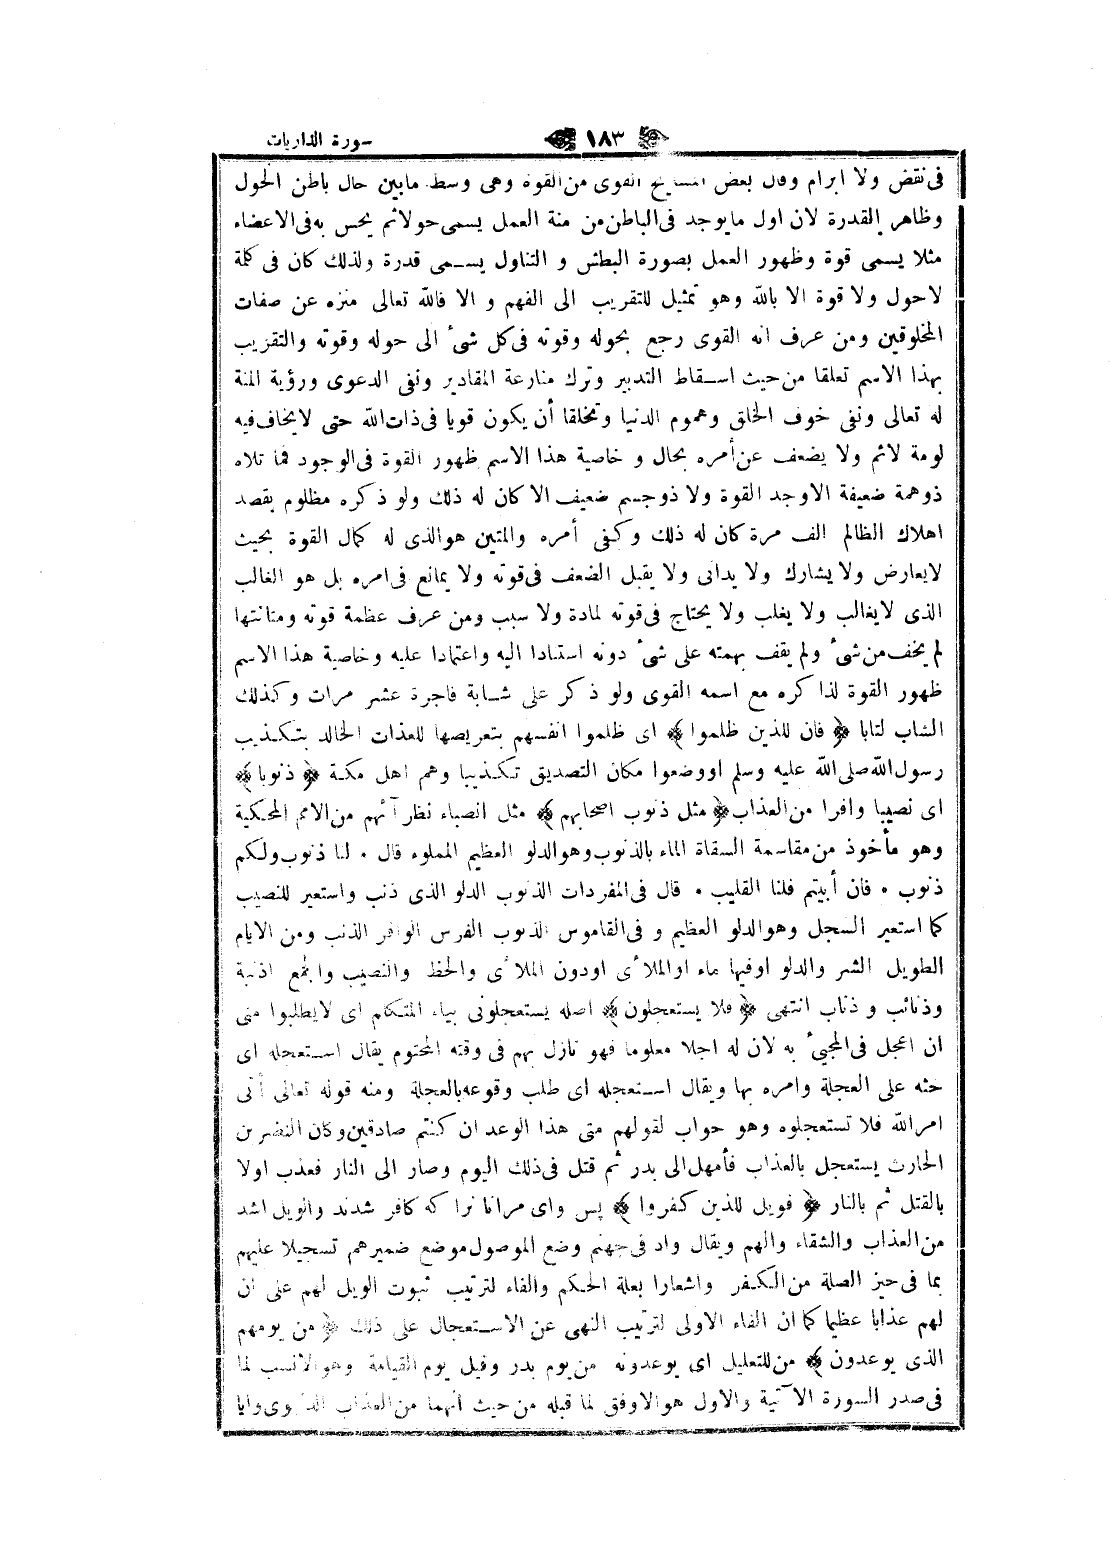 سورة الذاريات
١٨٣
فى نقض ولا ابرام وقال بعض المشايخ القوى من القوة وهى وسط مابين حال باطن الحول
وظاهر القدرة لان اول مايوجد فى الباطن من منة العمل يسمى حولا ثم يحس به فى الاعضاء
مثلا يسمى قوة وظهور العمل بصورة البطش و التناول يسمى قدرة ولذلك كان فى كلمة
لاحول ولا قوة الا بالله وهو تمثيل للتقريب الى الفهم و الا فالله تعالى منزه عن صفات
المخلوقين ومن عرف انه القوى رجع بحوله وقوته فى كل شىء الى حوله وقوته والتقريب
بهذا الاسم تعلقا من حيث اسقاط التدبير وترك منازعة المقادير ونفى الدعوى ورؤية المنة
له تعالى ونفى خوف الخلق وهموم الدنيا وتخلقا أن يكون قويا فى ذات الله حتى لايخاف فيه
لومة لائم ولا يضعف عن أمره بحال و خاصية هذا الاسم ظهور القوة فى الوجود فما تلاه
ذوهمة ضعيفة الاوجد القوة ولا ذوجسم ضعيف الا كان له ذلك ولو ذكره مظلوم بقصد
اهلاك الظالم الف مرة كان له ذلك وكفى أمره والمتين هوالذى له كمال القوة بحيث
لايعارض ولا يشارك ولا يدانى ولا يقبل الضعف فى قوته ولا يمانع فى امره بل هو الغالب
الذى لايغالب ولا يغلب ولا يحتاج فى قوته لمادة ولا سبب ومن عرف عظمة قوته ومتانتها
لم يخف من شىء ولم يقف بهمته على شىء دونه استنادا اليه واعتمادا عليه وخاصية هذا الاسم
ظهور القوة لذاكره مع اسمه القوى ولو ذكر على شابة فاجرة عشر مرات وكذلك
الشاب لتابا ﴿ فان للذين ظلموا ﴾ اى ظلموا انفسهم بتعريضها للعذاب الخالد بتكذيب
رسول الله صلى الله عليه وسلم اووضعوا مكان التصديق تكذيبا وهم اهل مكة ﴿ ذنوبا ﴾
اى نصيبا وافرا من العذاب ﴿ مثل ذنوب اصحابهم ﴾ مثل انصباء نظرآئهم من الامم المحكية
وهو مأخوذ من مقاسمة السقاة الماء بالذنوب وهوالدلو العظيم المملوء قال • لنا ذنوب ولكم
ذنوب • فان أبيتم فلنا القليب • قال فى المفردات الذنوب الدلو الذى ذنب واستعير للنصيب
كما استعير السجل وهوالدلو العظيم و فى القاموس الذنوب الفرس الوافر الذنب ومن الايام
الطويل الشر والدلو اوفيها ماء اوالملأى اودون الملأى والحظ والنصيب والجمع اذنبة
وذنائب و ذناب انتهى ﴿ فلا يستعجلون ﴾ اصله يستعجلونى بياء المتكلم اى لايطلبوا منى
ان اعجل فى المجيىء به لان له اجلا معلوما فهو نازل بهم فى وقته المحتوم يقال استعجله اى
حثه على العجلة وامره بها ويقال استعجله اى طلب وقوعه بالعجلة ومنه قوله تعالى أتى
امرالله فلا تستعجلوه وهو جواب لقولهم متى هذا الوعد ان كنتم صادقين وكان النضر بن
الحارث يستعجل بالعذاب فأمهل الى بدر ثم قتل فى ذلك اليوم وصار الى النار فعذب اولا
بالقتل ثم بالنار ﴿ فويل للذين كفروا ﴾ پس واى مرانانرا كه كافر شدند والويل اشد
من العذاب والشقاء والهم ويقال واد فى جهنم وضع الموصول موضع ضميرهم تسجيلا عليهم
بما فى حيز الصلة من الكفر واشعارا بعلة الحكم والفاء لترتيب ثبوت الويل لهم على ان
لهم عذابا عظيما كما ان الفاء الاولى لترتيب النهى عن الاستعجال على ذلك ﴿ من يومهم
الذى يوعدون ﴾ من للتعليل اى يوعدونه من يوم بدر وقيل يوم القيامة وهوالانسب لما
فى صدر السورة الآتية والاول هوالاوفق لما قبله من حيث أنهما من العذاب الدنيوى وايا